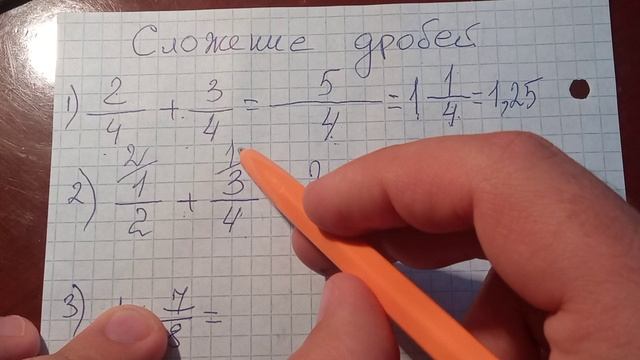 Сложение дробей
1) 2/4 + 3/4 = 5/4 = 1 1/4 = 1,25
2) 2/ 1/2 + 1/ 3/4 2
3) 7/8 =